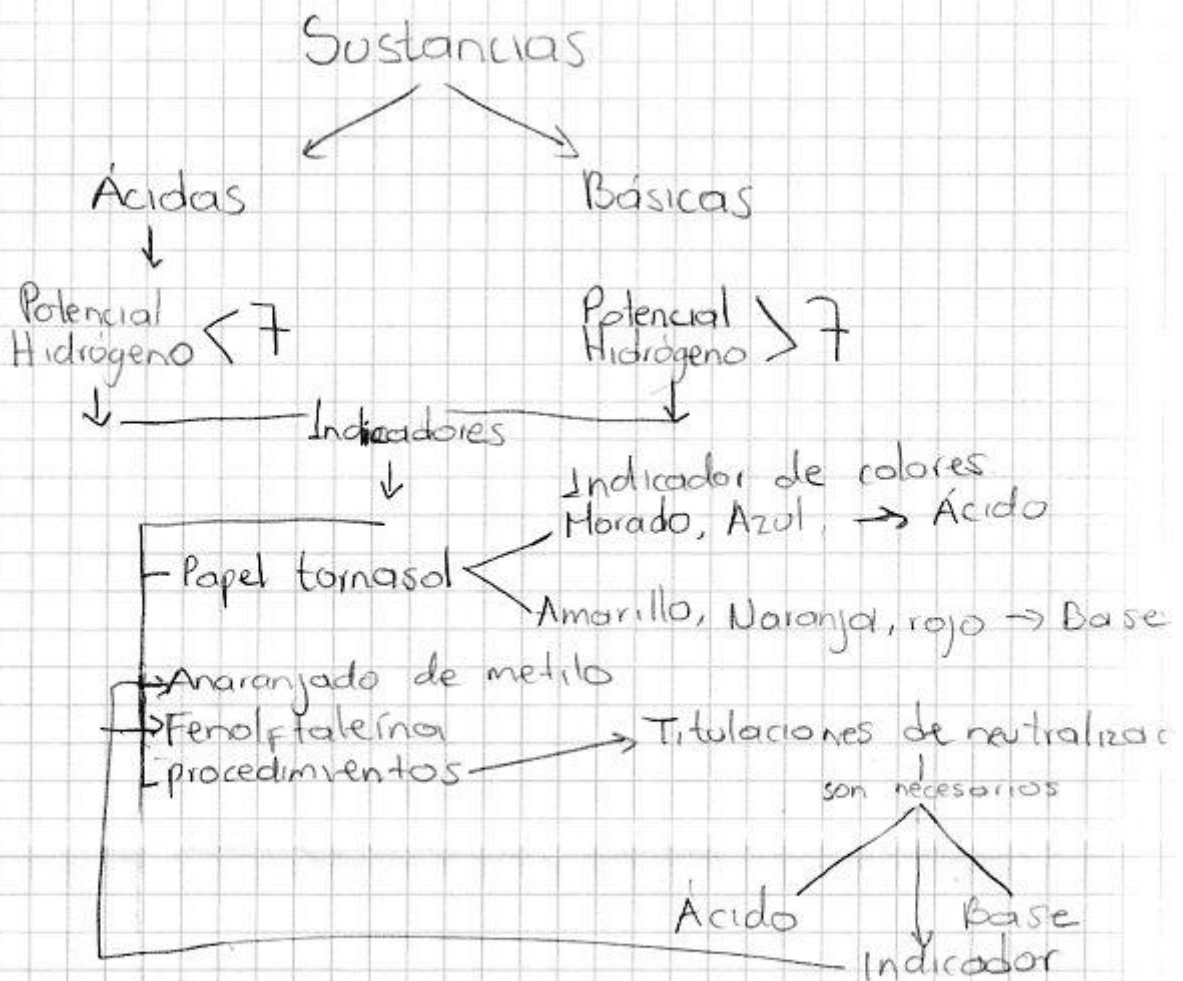 Sustancias
Ácidas
Básicas
Potencial
Hidrógeno < 7
Potencial
Hidrógeno > 7
Indicadores
Indicador de colores
Morado, Azul, → Ácido
- Papel tornasol
Amarillo, Naranja, rojo → Base
Anaranjado de metilo
Fenolftaleína
procedimientos
Titulaciones de neutralizac
son necesarios
Ácido
Base
Indicador